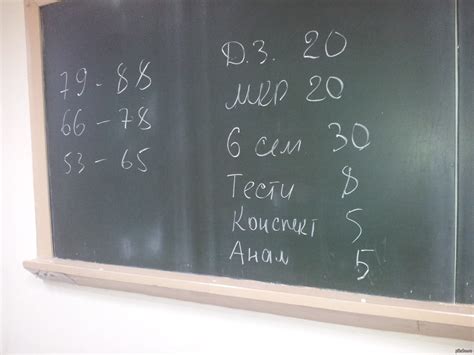 79 - 88
66 - 78
53 - 65
Д.З. 20
МКР 20
6 сем 30
Тести 8
Конспект 5
Анал 5